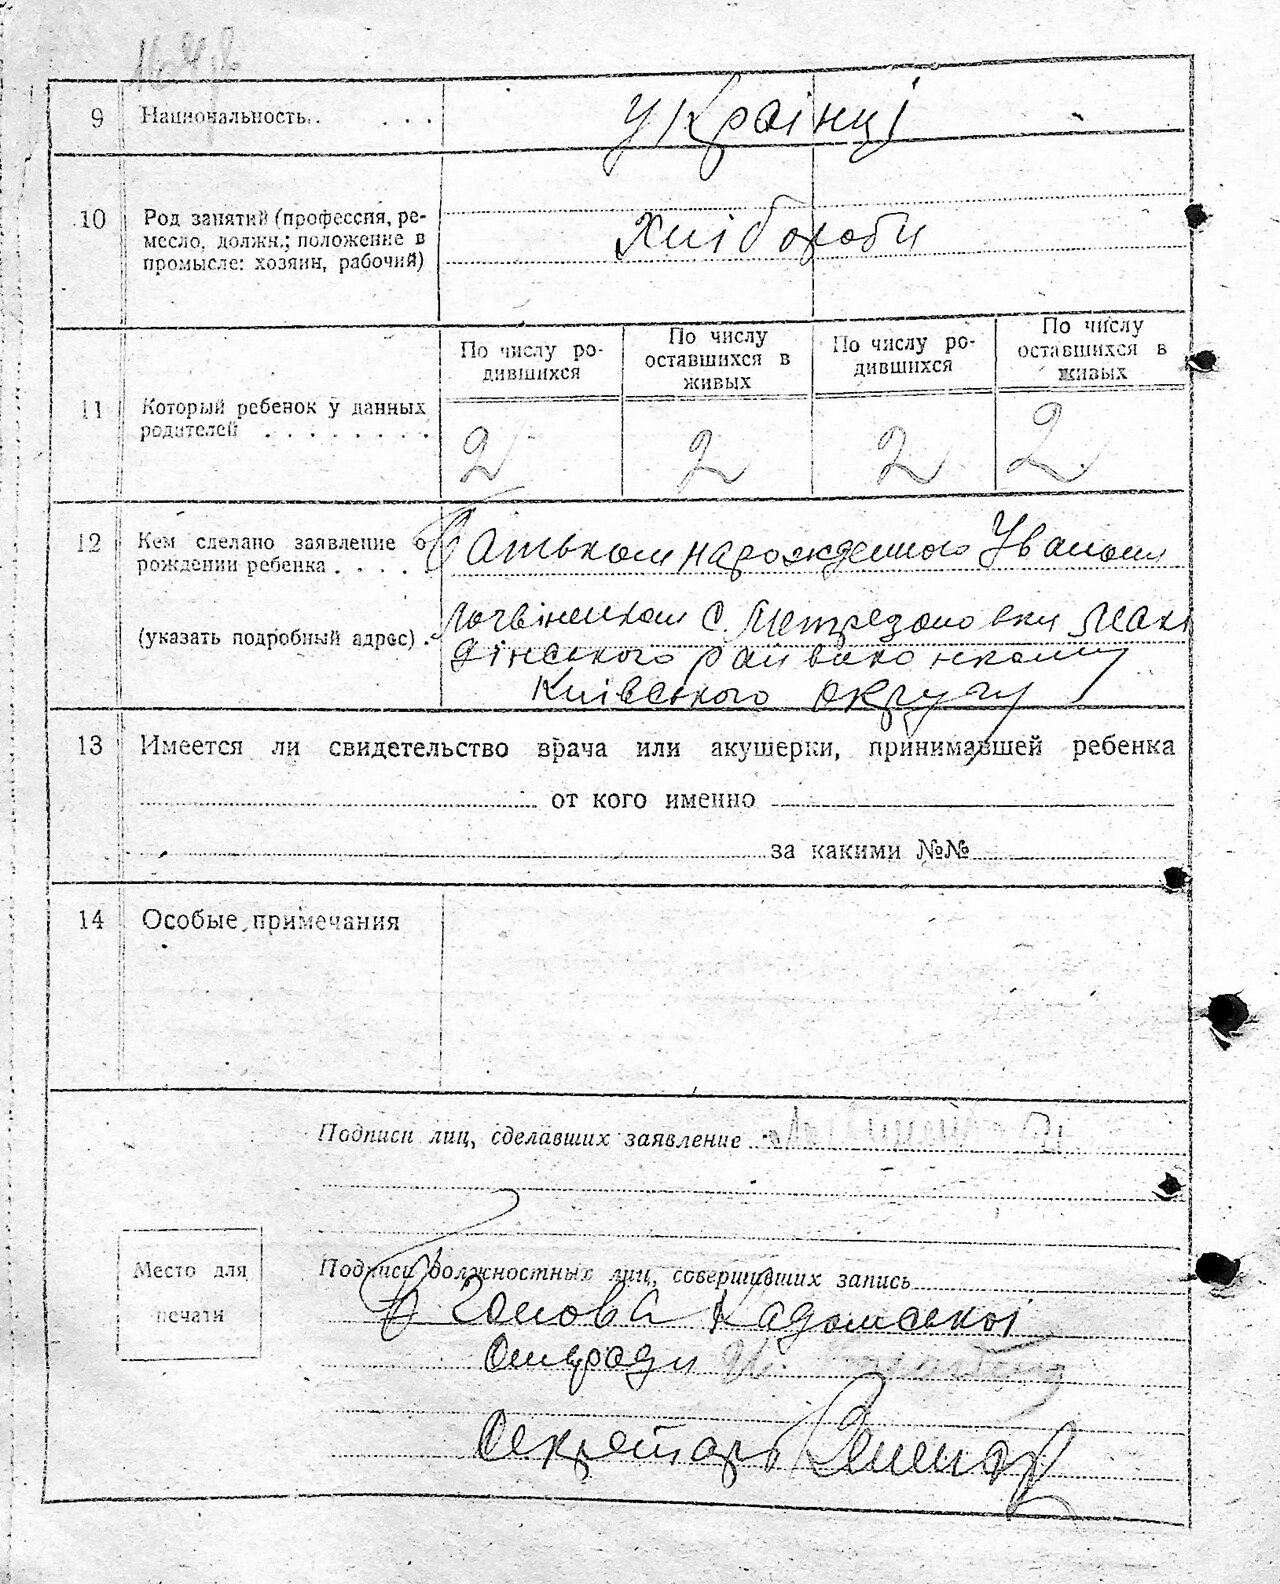 9 Национальность. . . . . українці
10 Род занятий (профессия, ре-
месло, должн.; положение в
промысле: хозяин, рабочий)
хлібороби
По числу ро-
дившихся
По числу
оставшихся в
живых
По числу ро-
дившихся
По числу
оставшихся в
живых
11 Который ребенок у данных
родителей . . . . . . . .
2 2 2 2
12 Кем сделано заявление о
рождении ребенка . . . .
(указать подробный адрес) .
Батьком нарожденного Іваном
с.
дінського райвиконкому
Київського округу
13 Имеется ли свидетельство врача или акушерки, принимавшей ребенка
от кого именно
за какими №№
14 Особые примечания
Подписи лиц, сделавших заявление
Место для
печати
Подписи должностных лиц, совершивших запись
Голова
Секретарь